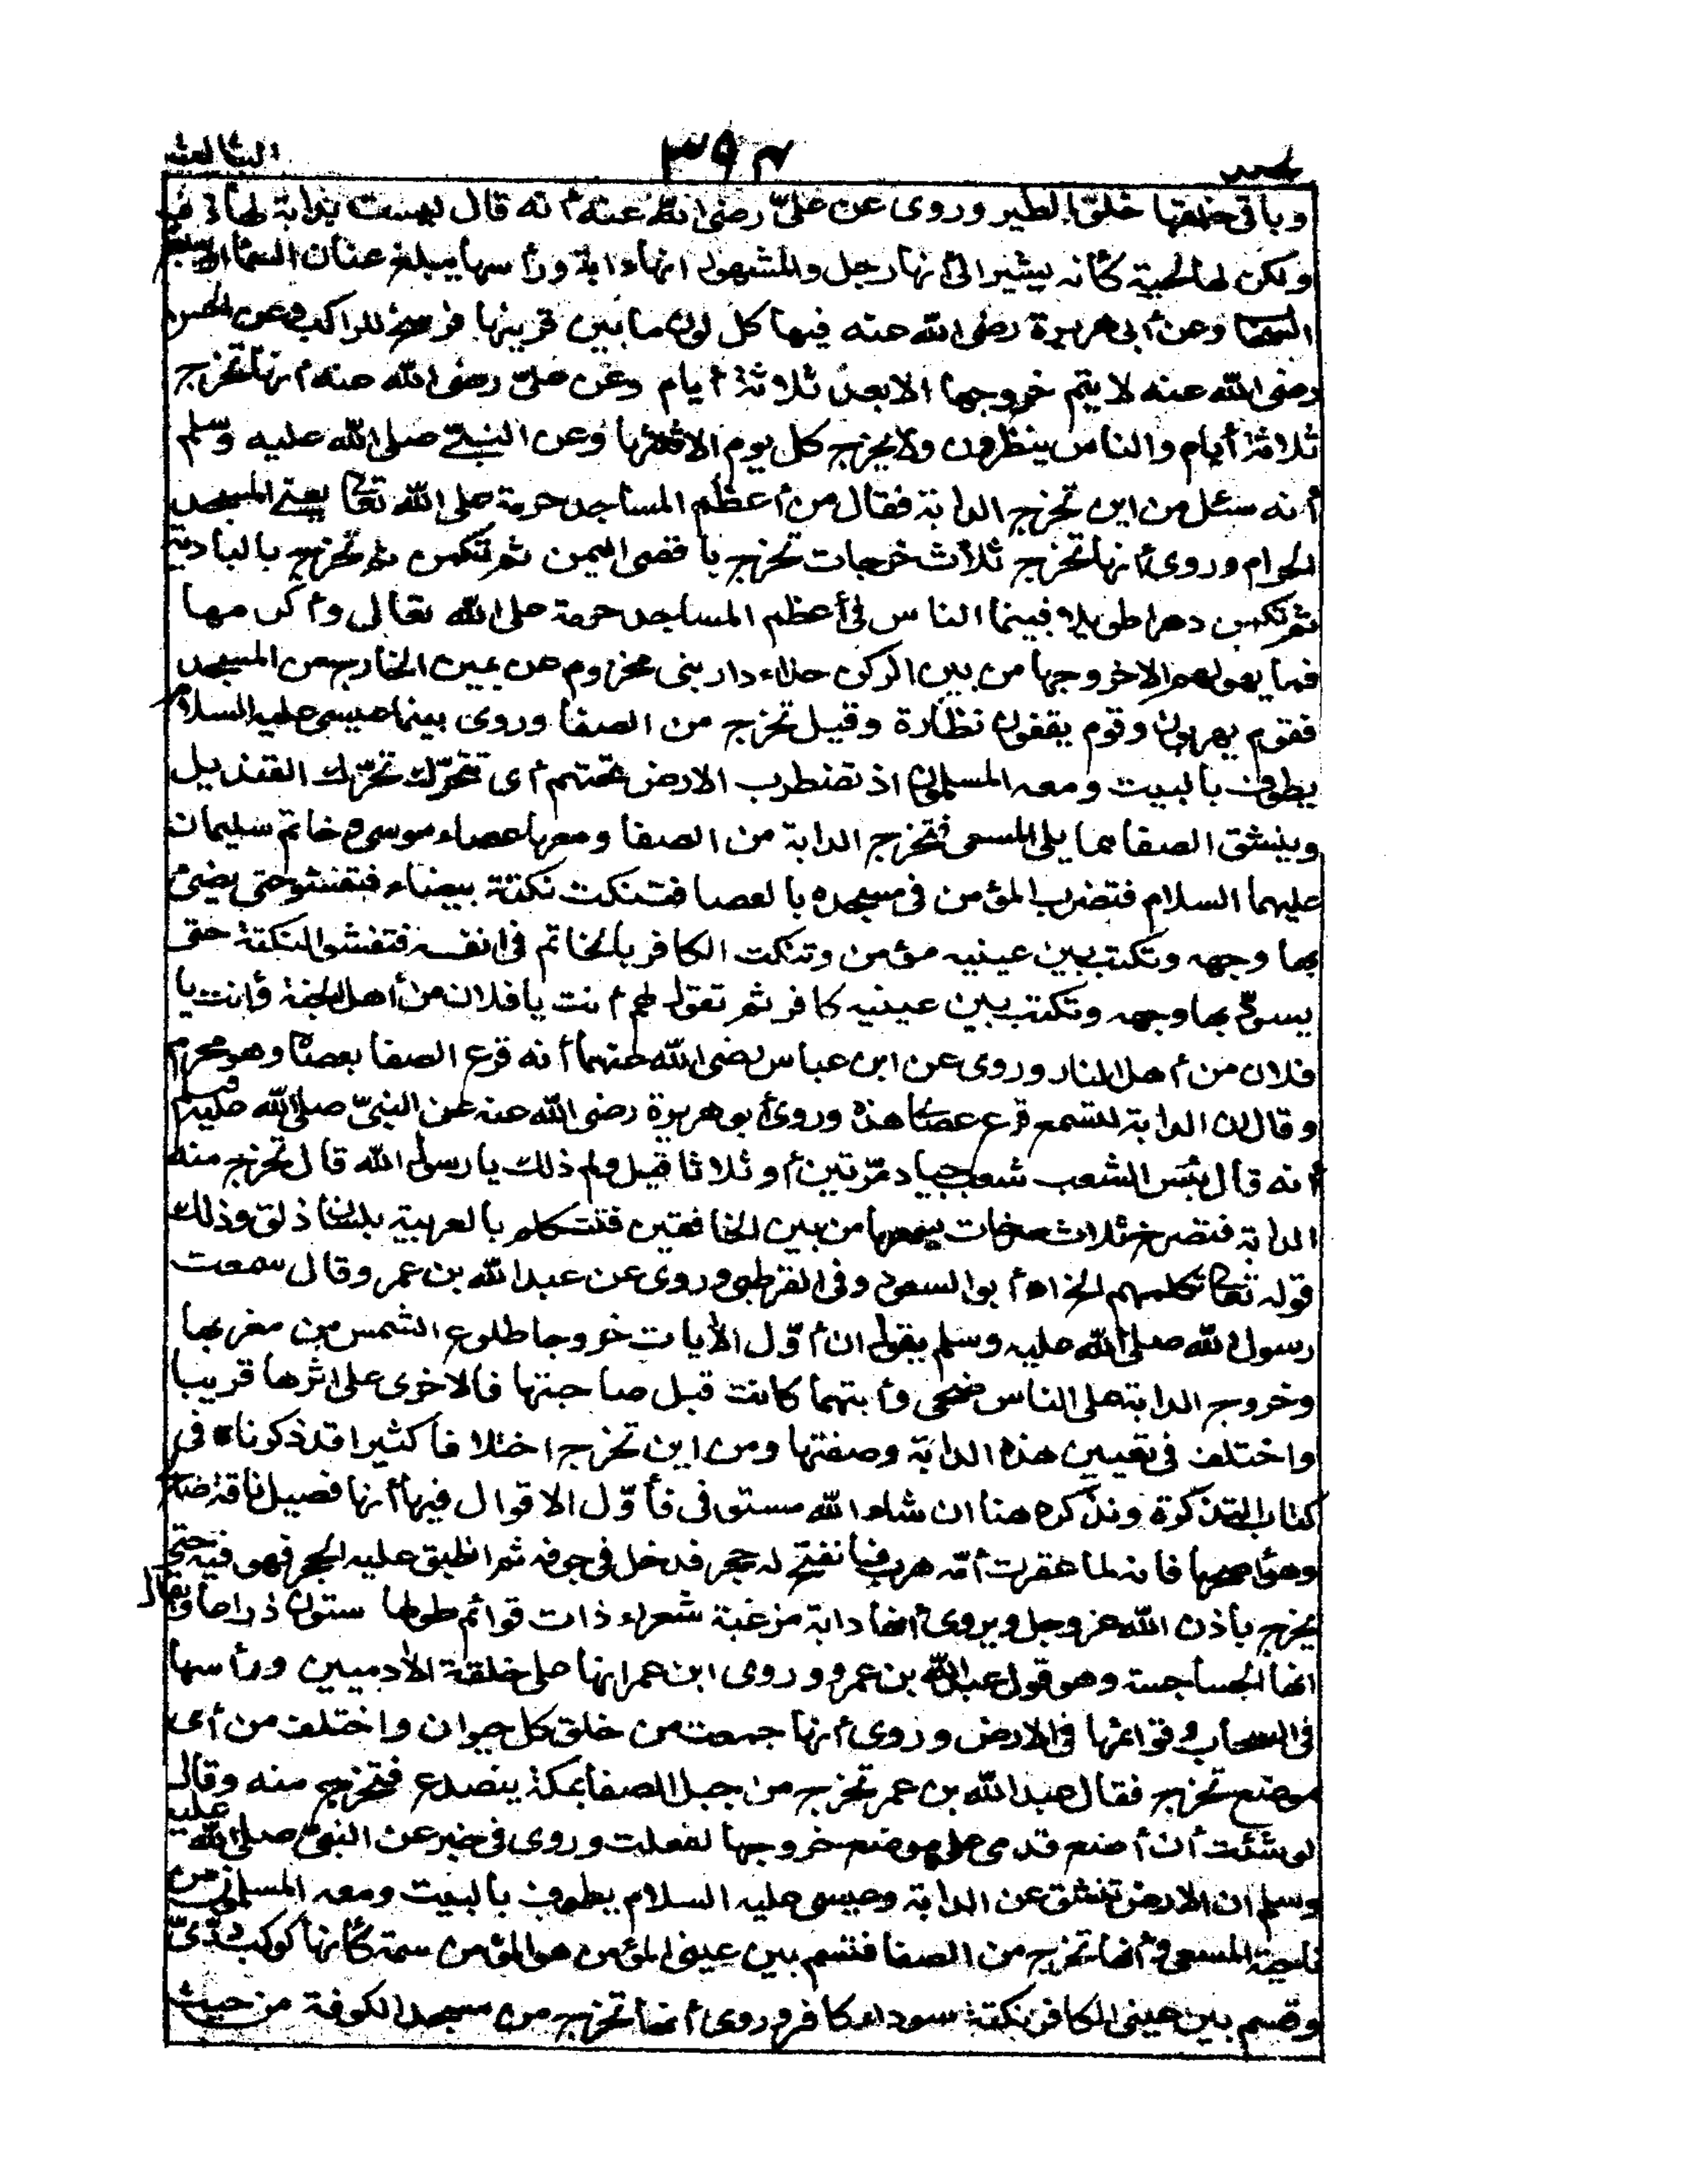 الثالث ٣٩٢
وباقي خلقها خلق الطير وروى عن عليّ رضى الله عنه أنه قال ليست بدابة لها ذنب
ولكن لها لحية كأنه يشير الى أنها رجل والمشهور انها دابة ورأسها يبلغ عنان السماء
السماء وعن أبى هريرة رضى الله عنه فيها كل لون ما بين قرينها فرسخ للراكب وعن الحسن
رضى الله عنه لا يتم خروجها الا بعد ثلاثة أيام وعن عليّ رضى الله عنه أنها تخرج
ثلاثة أيام والناس ينظرون ولا يخرج كل يوم الا ثلثها وعن النبيّ صلى الله عليه وسلم
أنه سئل من اين تخرج الدابة فقال من أعظم المساجد حرمة على الله تعالى يعنى المسجد
الحرام وروى أنها تخرج ثلاث خرجات تخرج بأقصى اليمن ثم تكمن ثم تخرج بالبادية
ثم تكمن دهرا طويلا فبينما الناس فى أعظم المساجد حرمة على الله تعالى وأكرمها
فما يهولهم الا خروجها من بين الركن حذاء دار بنى مخزوم عن يمين الخارج من المسجد
فقوم يهربون وقوم يقفون نظارة وقيل تخرج من الصفا وروى بينما عيسى عليه السلام
يطوف بالبيت ومعه المسلمون اذ تضطرب الارض تحتهم أى تتحرّك تحرّك القنديل
وينشق الصفا مما يلى المسعى فتخرج الدابة من الصفا ومعها عصاء موسى وخاتم سليمان
عليهما السلام فتضرب المؤمن فى مسجده بالعصا فتنكت نكتة بيضاء فتفشو حتى يضئ
بها وجهه وتكتب بين عينيه مؤمن وتنكت الكافر بالخاتم فى انفه فتفشو النكتة حتى
يسودّ بها وجهه وتكتب بين عينيه كافر ثم تقول لهم أنت يا فلان من أهل الجنة وأنت يا
فلان من أهل النار وروى عن ابن عباس رضى الله عنهما أنه قرع الصفا بعصاه وهو محرم
وقال ان الدابة لتسمع قرع عصاى هذه وروى أبو هريرة رضى الله عنه عن النبيّ صلى الله عليه وسلم
أنه قال بئس الشعب شعب جياد مرّتين أو ثلاثا قيل ولم ذلك يا رسول الله قال تخرج منه
الدابة فتصرخ ثلاث صرخات يسمعها من بين الخافقين فتتكلم بالعربية بلسان ذلق وذلك
قوله تعالى تكلمهم الخ اه أبو السعود وفى القرطبى وروى عن عبد الله بن عمر وقال سمعت
رسول الله صلى الله عليه وسلم يقول ان أوّل الأيات خروجا طلوع الشمس من مغربها
وخروج الدابة على الناس ضحى وأيتهما كانت قبل صاحبتها فالاخرى على اثرها قريبا
واختلف فى تعيين هذه الدابة وصفتها ومن اين تخرج اختلافا كثيرا قد ذكرناه فى
كتاب التذكرة ونذكره هنا ان شاء الله مستوفى فأوّل الاقوال فيها أنها فصيل ناقة صالح
وهو أصحها فانه لما عقرت أمّه هرب فانفتح له حجر فدخل فى جوفه ثم انطبق عليه الحجر فهو فيه حتى
يخرج بأذن الله عز وجل ويروى أنها دابة مزغبة شعراء ذات قوائم طولها ستون ذراعا ويقال
انها الجساسة وهو قول عبد الله بن عمر وروى ابن عمر انها على خلقة الأدميين ورأسها
فى السحاب وقوائمها فى الارض وروى أنها جمعت من خلق كل حيوان واختلف من أى
موضع تخرج فقال عبد الله بن عمر تخرج من جبل الصفا بمكة ينصدع فتخرج منه وقال
لو شئت أن أضع قدمى على موضع خروجها لفعلت وروى فى خبر عن النبيّ صلى الله عليه
وسلم ان الارض تنشق عن الدابة وعيسى عليه السلام يطوف بالبيت ومعه المسلمون من
ناحية المسعى وأنها تخرج من الصفا فتسم بين عينى المؤمن هو المؤمن سمة كأنها كوكب درّىّ
وتسم بين عينى الكافر نكتة سوداء كافر وروى أنها تخرج من مسجد الكوفة من حيث